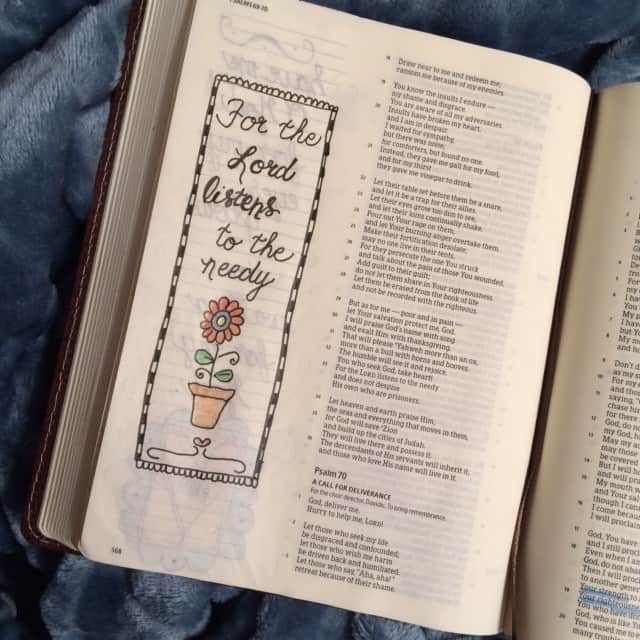 PSALMS 69-70
For the
Lord
listens
to the
needy
568
18 Draw near to me and redeem me;
ransom me because of my enemies.
19 You know the insults I endure —
my shame and disgrace.
You are aware of all my adversaries.
20 Insults have broken my heart,
and I am in despair.
I waited for sympathy,
but there was none;
for comforters, but found no one.
21 Instead, they gave me gall for my food,
and for my thirst
they gave me vinegar to drink.
22 Let their table set before them be a snare,
and let it be a trap for their allies.
23 Let their eyes grow too dim to see,
and let their loins continually shake.
24 Pour out Your rage on them,
and let Your burning anger overtake them.
25 Make their fortification desolate;
may no one live in their tents.
26 For they persecute the one You struck
and talk about the pain of those You wounded.
27 Add guilt to their guilt;
do not let them share in Your righteousness.
28 Let them be erased from the book of life
and not be recorded with the righteous.
29 But as for me — poor and in pain —
let Your salvation protect me, God.
30 I will praise God's name with song
and exalt Him with thanksgiving.
31 That will please Yahweh more than an ox,
more than a bull with horns and hooves.
32 The humble will see it and rejoice.
You who seek God, take heart!
33 For the LORD listens to the needy
and does not despise
His own who are prisoners.
34 Let heaven and earth praise Him,
the seas and everything that moves in them,
35 for God will save Zion
and build up the cities of Judah.
They will live there and possess it.
36 The descendants of His servants will inherit it,
and those who love His name will live in it.
Psalm 70
A CALL FOR DELIVERANCE
For the choir director. Davidic. To bring remembrance.
1 God, deliver me.
Hurry to help me, LORD!
2 Let those who seek my life
be disgraced and confounded;
let those who wish me harm
be driven back and humiliated.
3 Let those who say, "Aha, aha!"
retreat because of their shame.